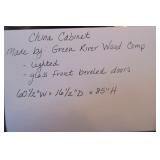 China Cabinet
Made by: Green River Wood Comp
- Lighted
- glass front beveled doors
60½"W = 16½"D = 85"H